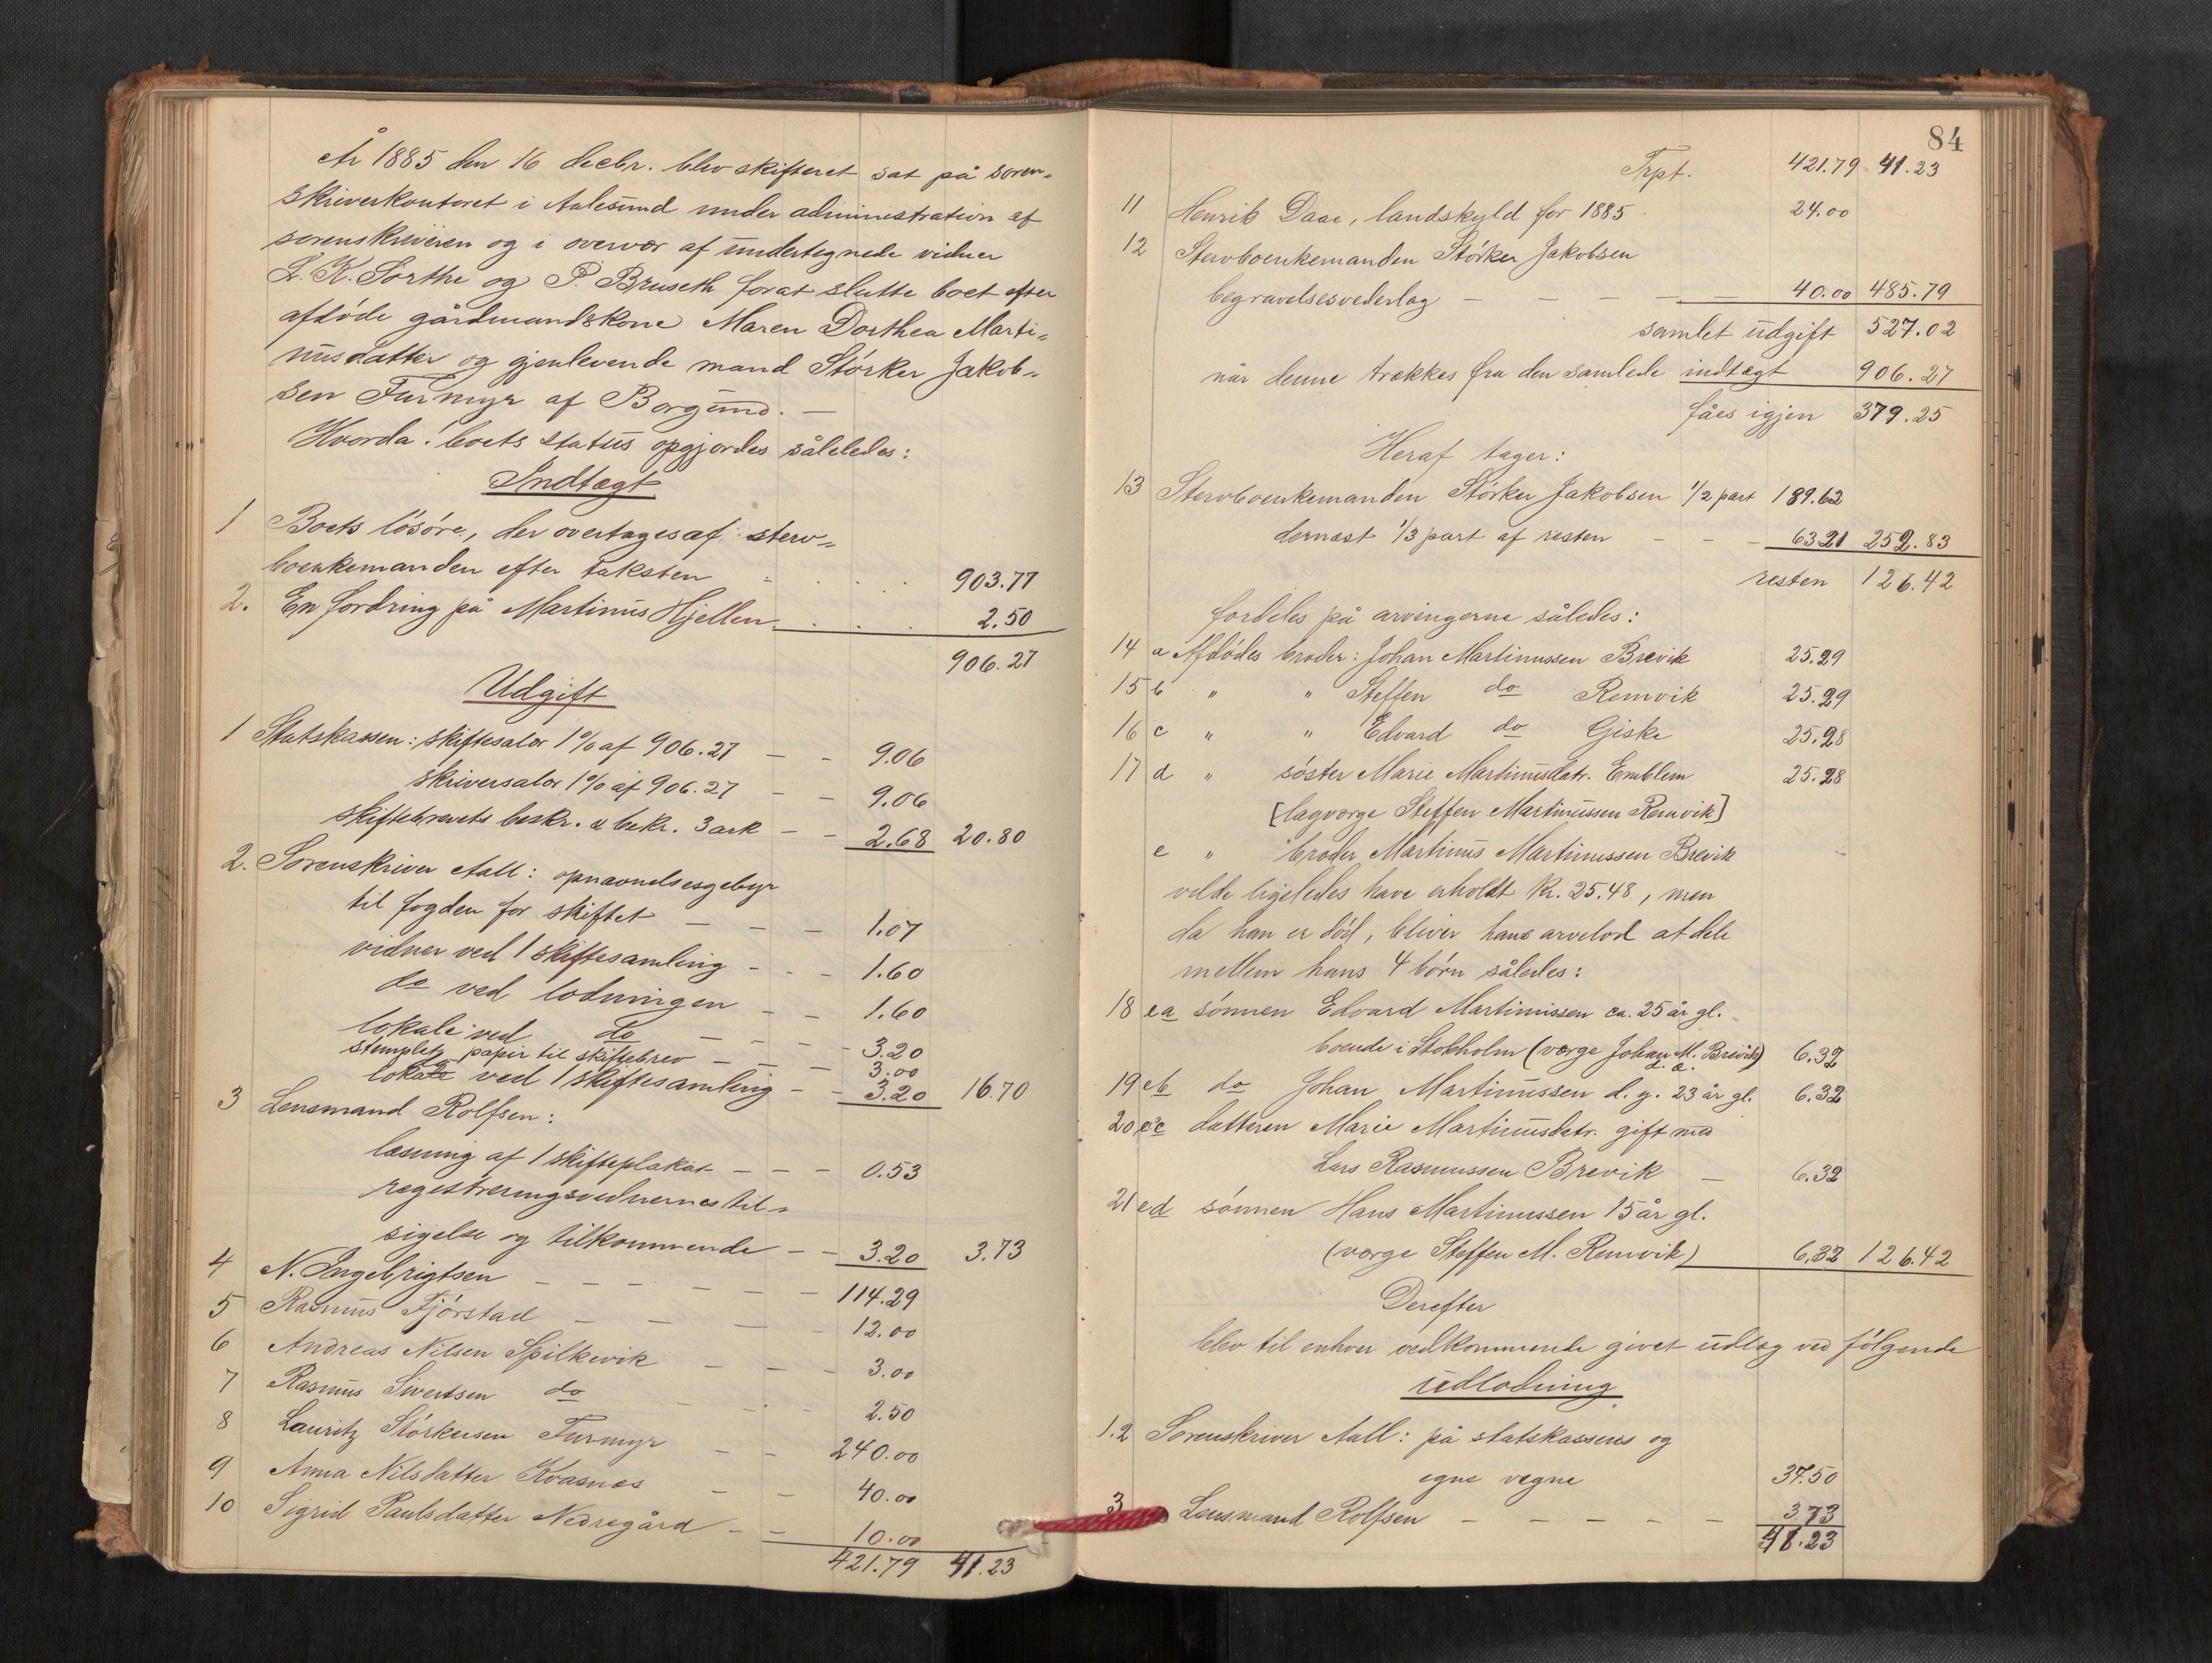 År 1885 den 16 decbr. blev skifteret sat på soren-
skriverkontoret i Aalesund under administration af
sorenskriveren og i overvær af undertegnede vidner
L. K. Sorthe og P. Bruseth forat slutte boet efter
afdöde gårdmandskone Maren Dorthea Marti-
nusdatter og gjenlevende mand Störker Jakob-
sen Furmyr af Borgund. —
Hvorda! boets status opgjordes såleledes:
Indtægt
1 Boets lösöre, der overtages af sterv-
boenkemanden efter taksten . . . 903.77
2. En fordring på Martinus Hjellen . . . 2.50
906.27
Udgift
1 Statskassen: skiftesalær 1% af 906.27 — — 9.06
skriversalær 1% af 906.27 — — 9.06
skiftebrevets beskr. & bekr. 3 ark — — 2.68 20.80
2. Sorenskriver Aall: opnævnelsesgebyr
til fogden for skiftet — — — 1.07
vidner ved 1 skiftesamling — — — 1.60
do ved lodningen — — 1.60
lokale ved do — — — 3.20
stemplet papir til skiftebrev — — — 3.00
lokale ved 1 skiftesamling — — 3.20 16.70
3 Lensmand Rolfsen:
læsning af 1 skifteplakat — — — 0.53
registreringsvidnernes til-
sigelse og tilkommende — — 3.20 3.73
4 N. Ingebrigtsen — — — — — — 114.29
5 Rasmus Fjörstad — — — — 12.00
6 Andreas Nilsen Spilkevik — — — 3.00
7 Rasmus Sivertsen do — — — 2.50
8 Lauritz Störkersen Furmyr — — 240.00
9 Anna Nilsdatter Kvasnes — — 40.00
10 Sigrid Paulsdatter Nedregård — — 10.00
421.79 41.23
84
Trpt. 421.79 41.23
11 Henrik Daae, landskyld for 1885 24.00
12 Stervboenkemanden Störker Jakobsen
begravelsesvederlag — — — — — 40.00 485.79
samlet udgift 527.02
når denne trækkes fra den samlede indtægt 906.27
fåes igjen 379.25
Heraf tager:
13 Stervboenkemanden Störker Jakobsen 1/2 part 189.62
dernæst 1/3 part af resten — — — 63.21 252.83
resten 126.42
fordeles på arvingerne således:
14 a Afdödes broder: Johan Martinussen Brevik 25.29
15 b " " Steffen do Remvik 25.29
16 c " " Edvard do Giske 25.28
17 d " söster Marie Martinusdatr. Emblem 25.28
[lagværge Steffen Martinussen Remvik]
e " broder Martinus Martinussen Brevik
vilde ligeledes have erholdt Kr. 25.48, men
da han er död, bliver hans arvelod at dele
mellem hans 4 börn således:
18 ea sönnen Edvard Martinussen ca. 25 år gl.
boende i Stokholm (værge Johan M. Brevik) 6.32
19 eb do Johan Martinussen d. y. 23 år gl. 6.32
20 ec datteren Marie Martinusdatr. gift med
Lars Rasmussen Brevik — 6.32
21 ed sönnen Hans Martinussen 15 år gl.
(værge Steffen M. Remvik) 6.32 126.42
Derefter
blev til enhver vedkommende givet udlæg ved fölgende
udlodning
1.2 Sorenskriver Aall: på statskassens og
egne vegne 37.50
3 Lensmand Rolfsen — — — — — 3.73
41.23